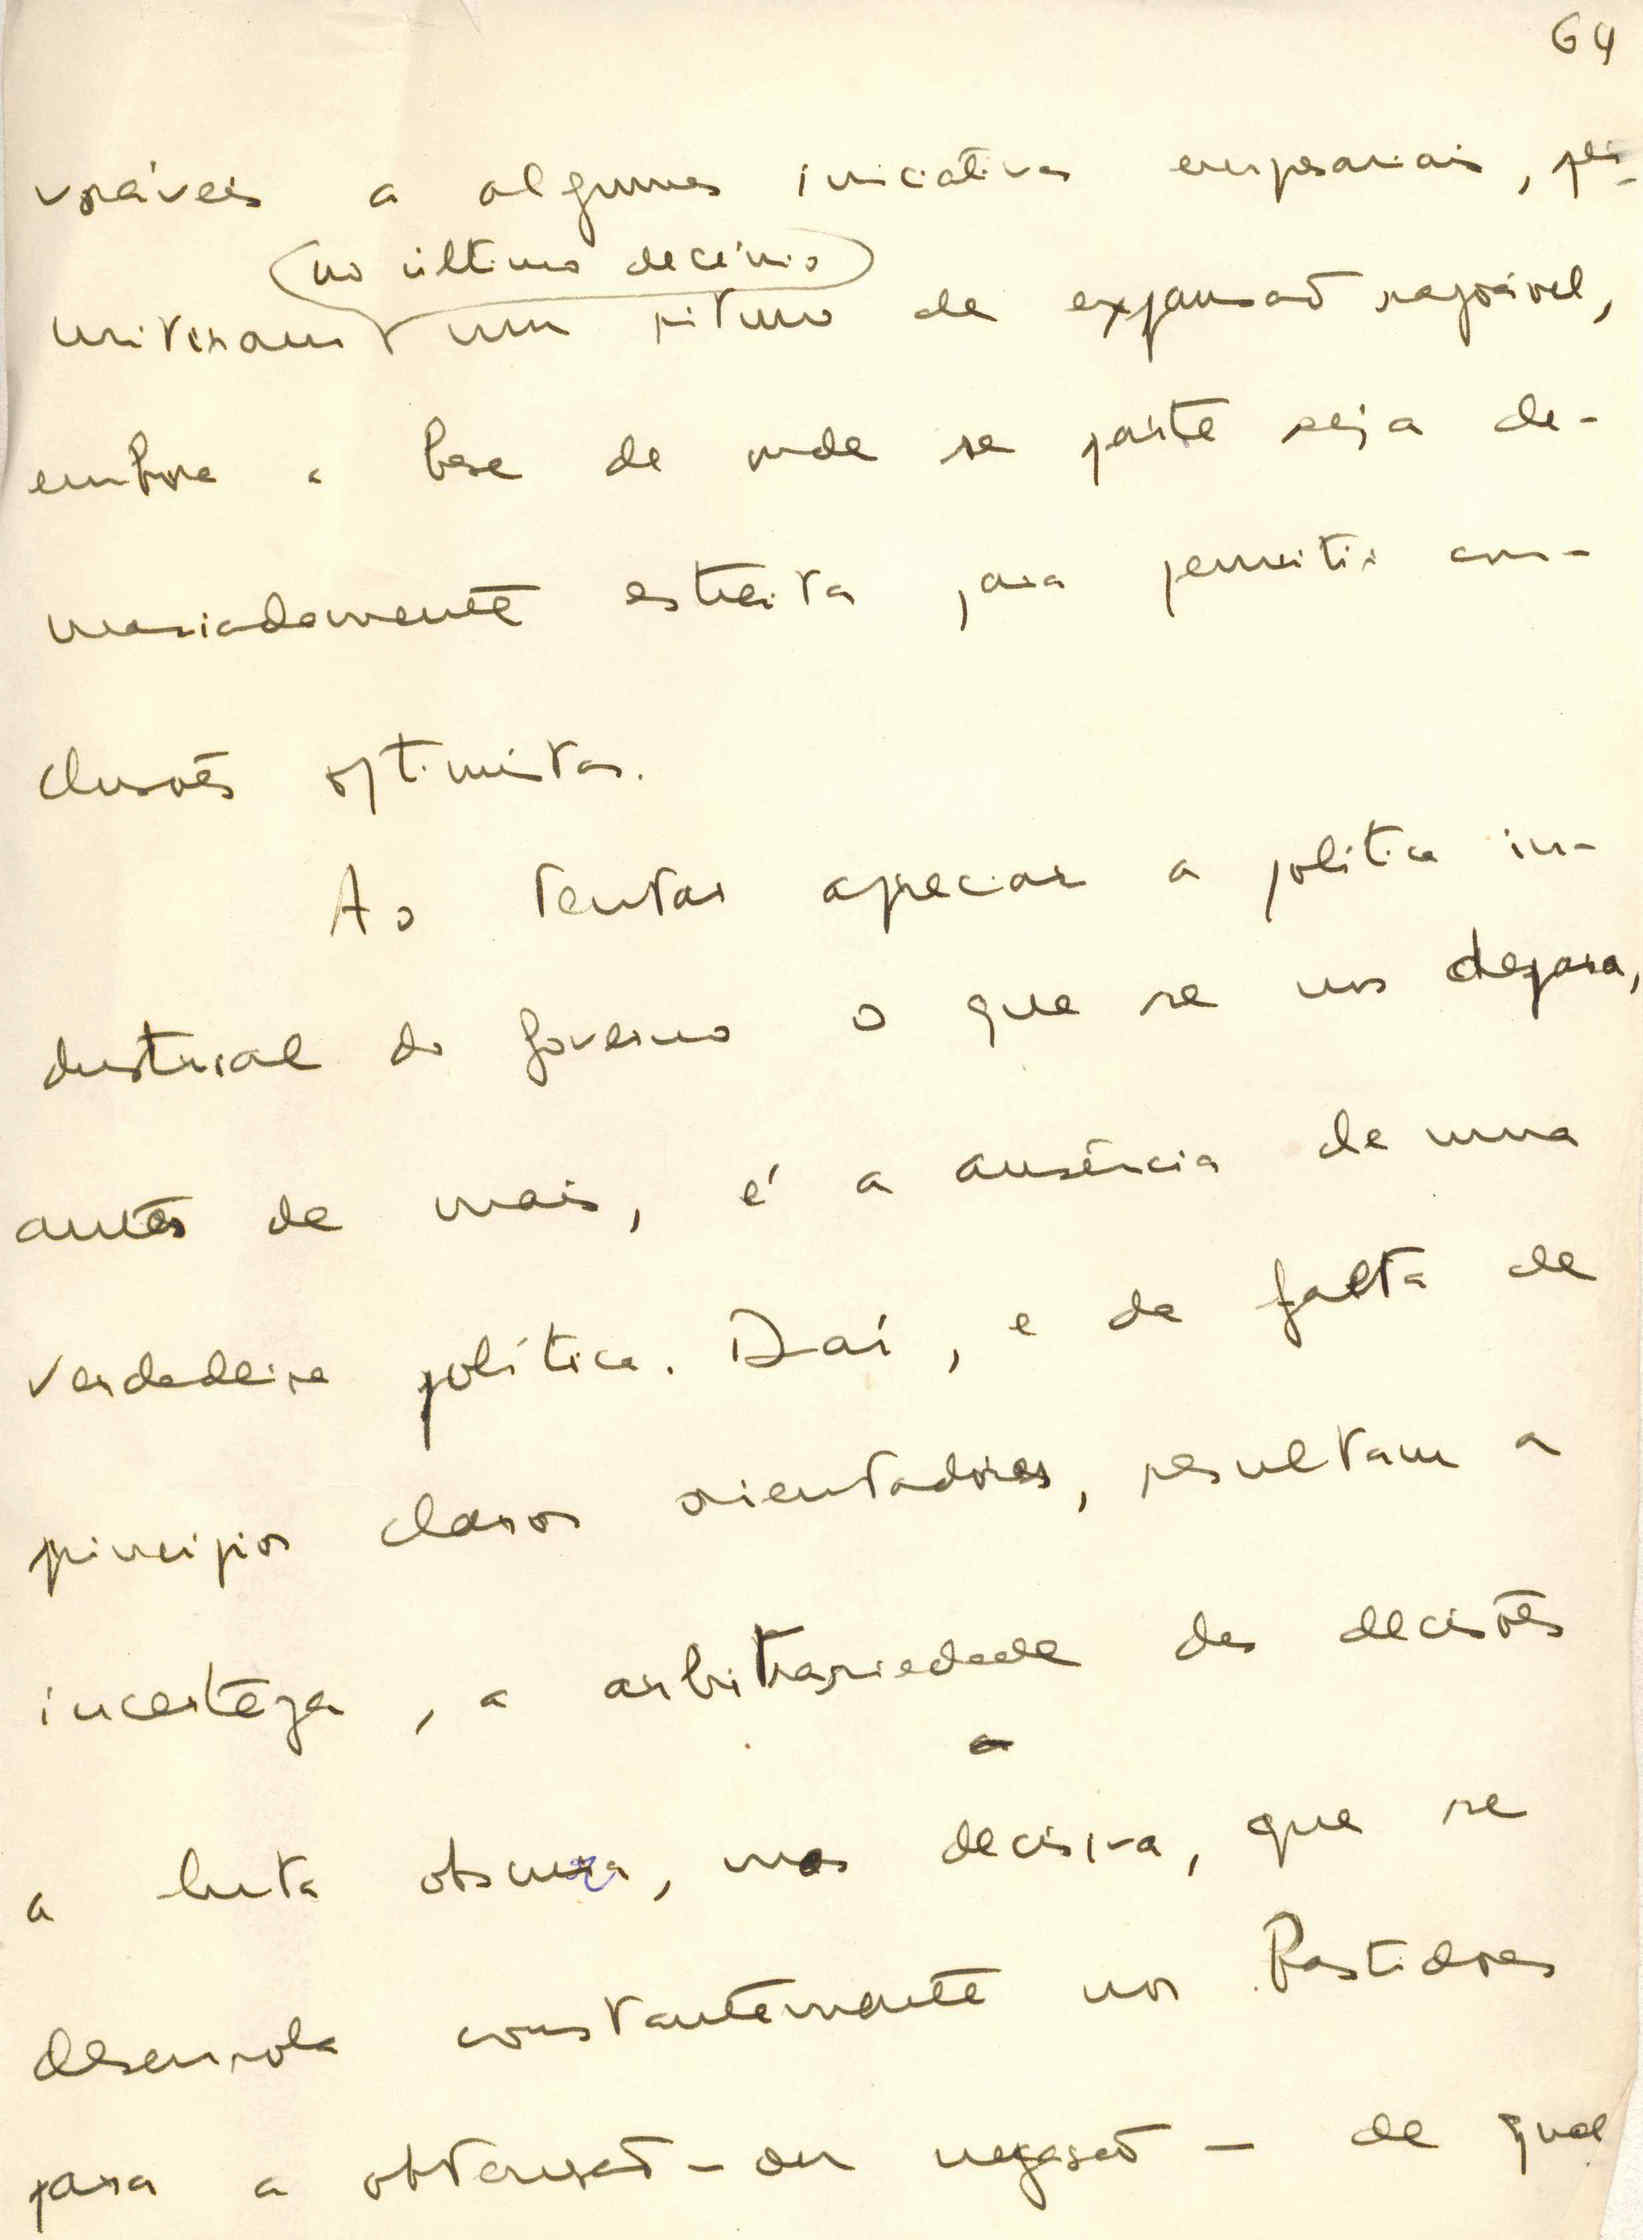 64
voráveis a algumas iniciativas empresariais, per-
(no último decénio)
mitiram um ritmo de expansão razoável,
embora a base de onde se parte seja de-
masiadamente estreita para permitir con-
clusões optimistas.
Ao tentar apreciar a política in-
dustrial do Governo o que se nos depara,
antes de mais, é a ausência de uma
verdadeira política. Daí, e da falta de
princípios claros orientadores, resultam a
incerteza, a arbitrariedade das decisões
a luta obscura, mas decisiva, que se
desenrola constantemente nos bastidores
para a obtenção - ou negação - de qual